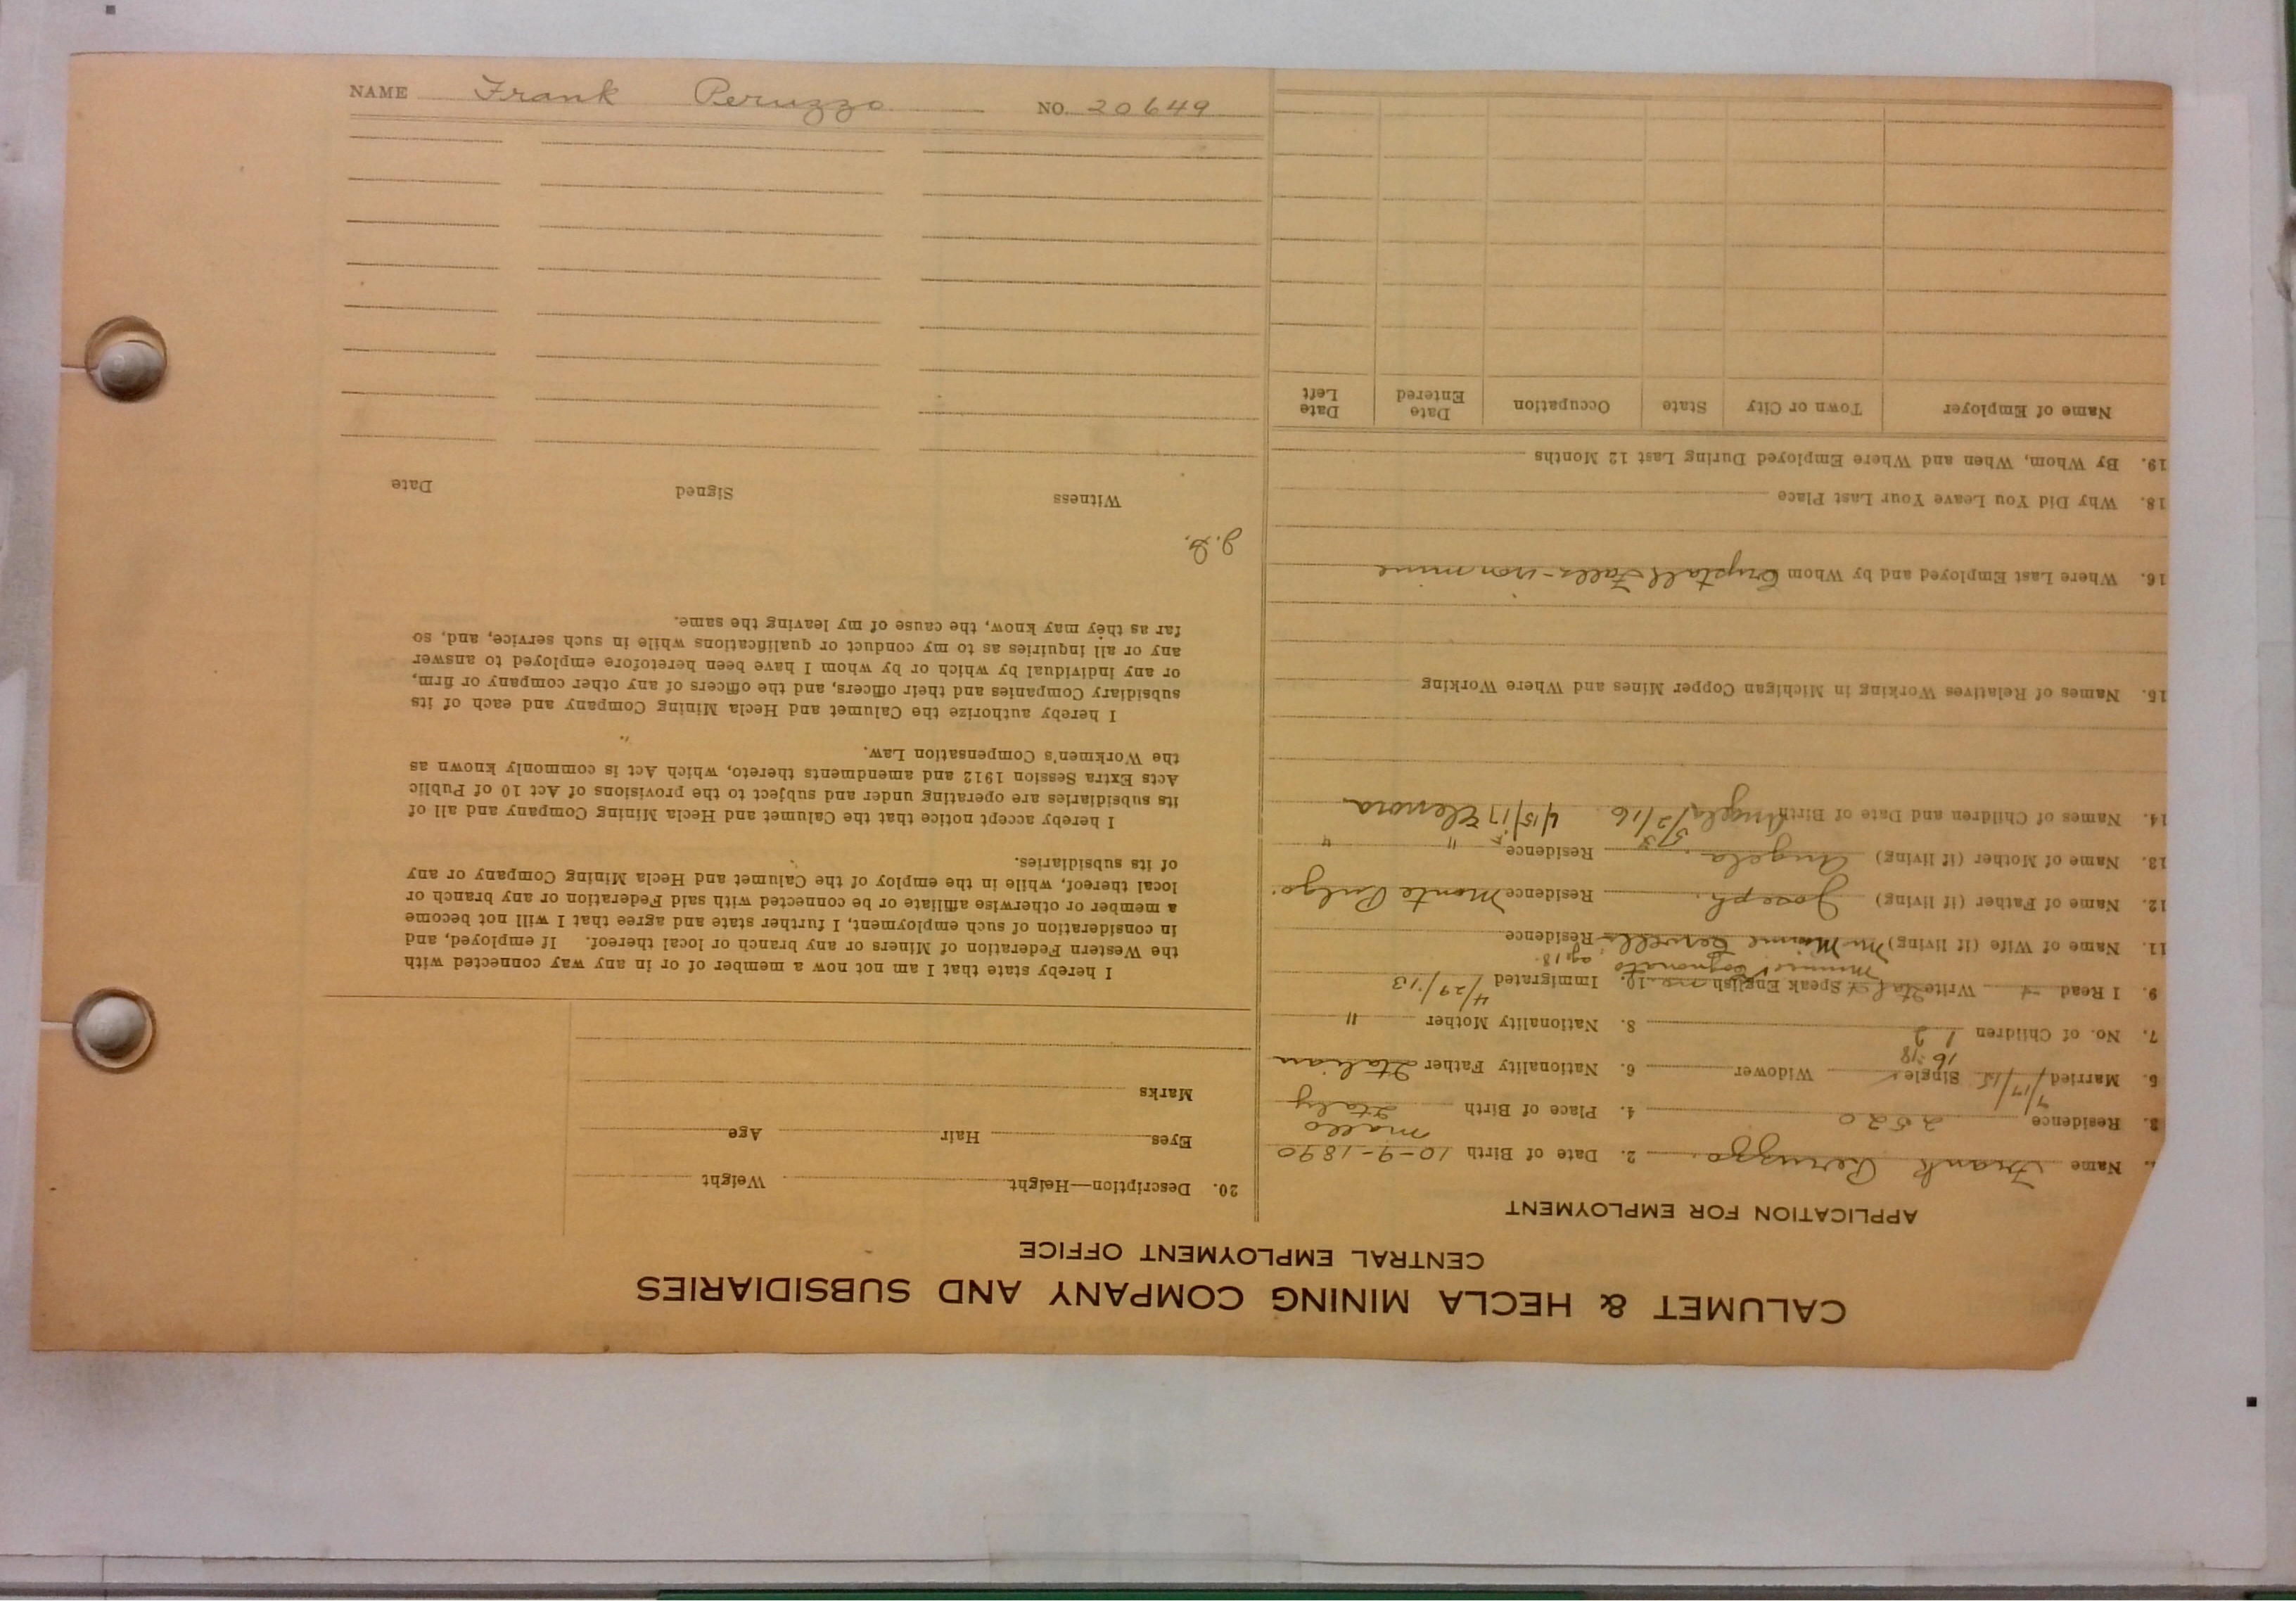 CALUMET & HECLA MINING COMPANY AND SUBSIDIARIES
CENTRAL EMPLOYMENT OFFICE
APPLICATION FOR EMPLOYMENT
1. Name Frank Peruzzo. 2. Date of Birth 10-9-1890
3. Residence 2520 4. Place of Birth Italy
5. Married 7/17/15 Single Widower 6. Nationality Father Italian
16 18
7. No. of Children 1 2 8. Nationality Mother "
9. I Read Write Ital Speak English 10. Immigrated 4/29/13
Minnie age 18
11. Name of Wife (if living) Minnie Residence
12. Name of Father (if living) Joseph. Residence Monte
13. Name of Mother (if living) Angela. Residence " "
14. Names of Children and Date of Birth Angela 5/2/16 4/15/17 Elenora
15. Names of Relatives Working in Michigan Copper Mines and Where Working
16. Where Last Employed and by Whom Crystall Falls-iron mine
18. Why Did You Leave Your Last Place
19. By Whom, When and Where Employed During Last 12 Months
Name of Employer Town or City State Occupation Date Entered Date Left
20. Description—Height Weight
Eyes Hair Age
Marks
I hereby state that I am not now a member of or in any way connected with
the Western Federation of Miners or any branch or local thereof. If employed, and
in consideration of such employment, I further state and agree that I will not become
a member or otherwise affiliate or be connected with said Federation or any branch or
local thereof, while in the employ of the Calumet and Hecla Mining Company or any
of its subsidiaries.
I hereby accept notice that the Calumet and Hecla Mining Company and all of
its subsidiaries are operating under and subject to the provisions of Act 10 of Public
Acts Extra Session 1912 and amendments thereto, which Act is commonly known as
the Workmen's Compensation Law.
I hereby authorize the Calumet and Hecla Mining Company and each of its
subsidiary Companies and their officers, and the officers of any other company or firm,
or any individual by which or by whom I have been heretofore employed to answer
any or all inquiries as to my conduct or qualifications while in such service, and, so
far as they may know, the cause of my leaving the same.
Witness Signed Date
NAME Frank Peruzzo NO. 20649